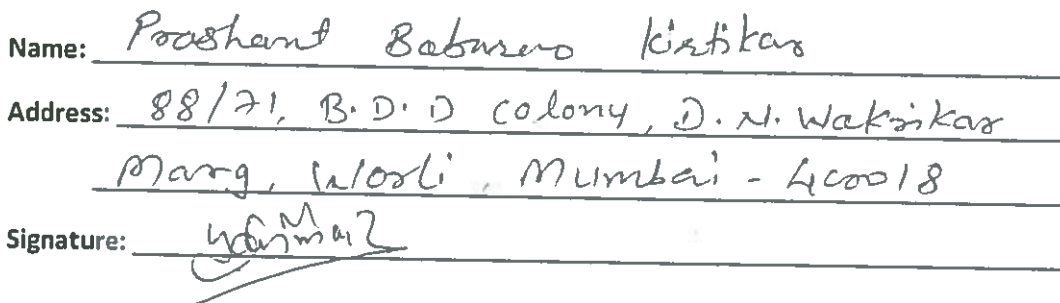 Name: Prashant Baburao Kirtikar
Address: 88/71, B.D.D colony, D.N. Wakrikar
Marg, Worli, Mumbai - 400018
Signature: